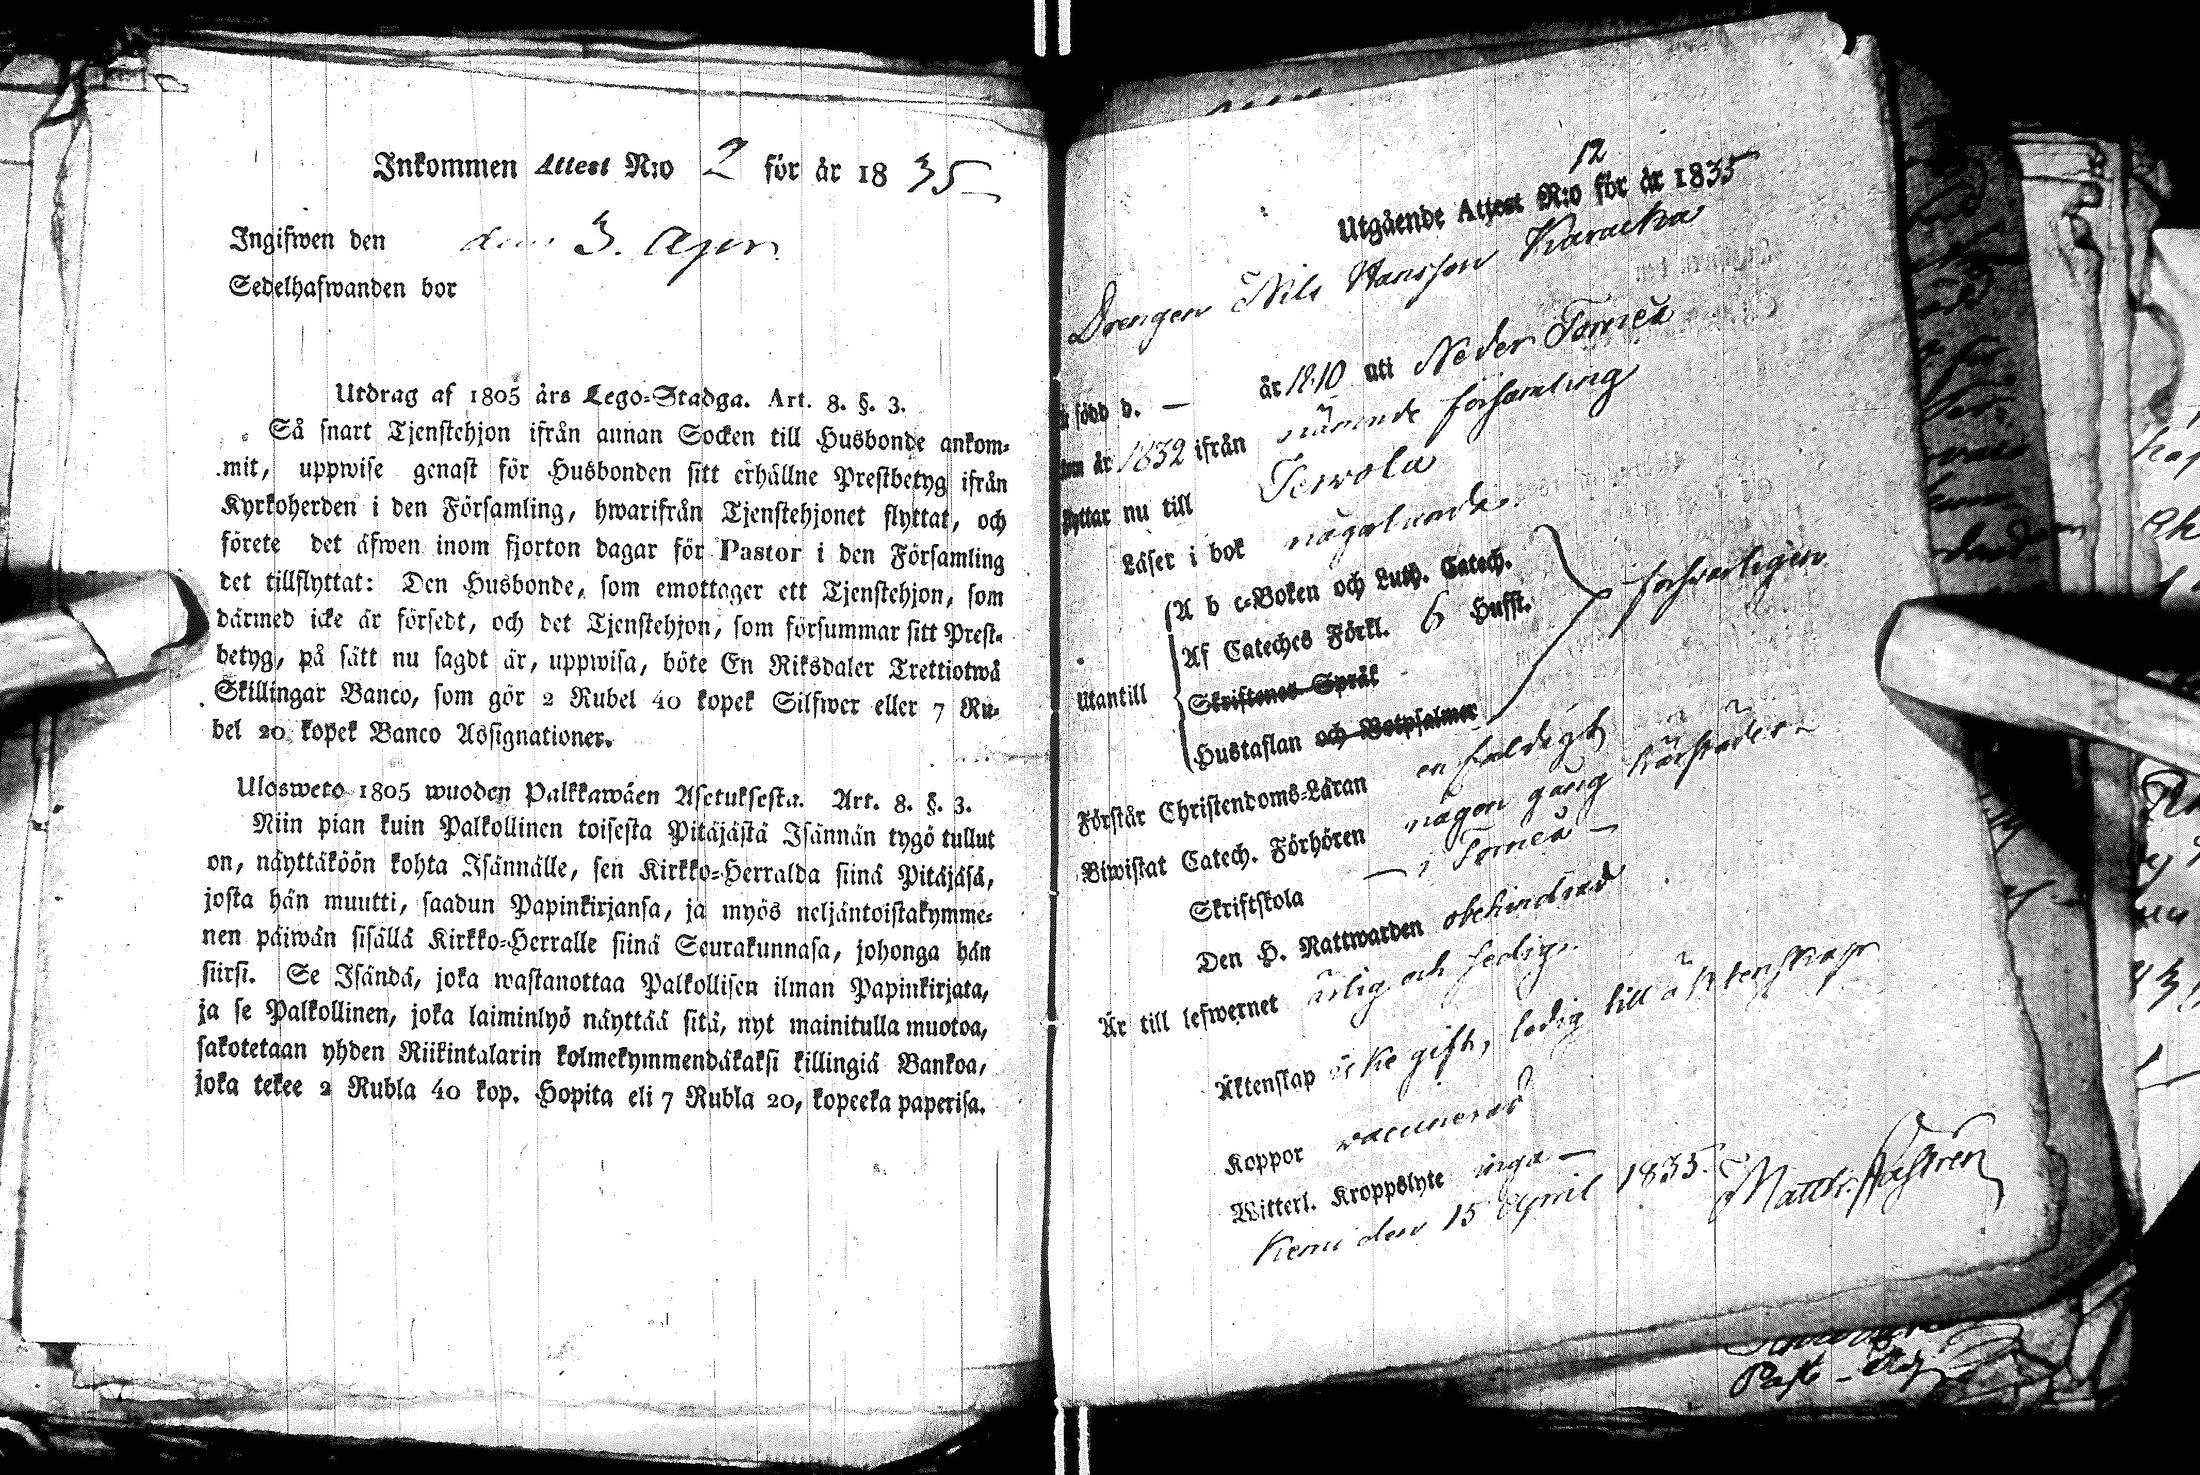 Inkommen Attest N:o 2 för år 1835
Ingifwen den den 3. Apr
Sedelhafwanden bor
Utdrag af 1805 års Lego-Stadga. Art. 8. §. 3.
Så snart Tjenstehjon ifrån annan Socken till Husbonde ankom-
mit, uppwise genast för Husbonden sitt erhållne Prestbetyg ifrån
Kyrkoherden i den Församling, hwarifrån Tjenstehjonet flyttat, och
förete det äfwen inom fjorton dagar för Pastor i den Församling
det tillflyttat: Den Husbonde, som emottager ett Tjenstehjon, som
därmed icke är försedt, och det Tjenstehjon, som försummar sitt Prest-
betyg, på sätt nu sagdt är, uppwisa, böte En Riksdaler Trettiotwå
Skillingar Banco, som gör 2 Rubel 40 kopek Silfwer eller 7 Ru-
bel 20 kopek Banco Assignationer.
Ulosweto 1805 wuoden Palkkawäen Asetuksesta. Art. 8. §. 3.
Niin pian kuin Palkollinen toisesta Pitäjästä Isännän tygö tullut
on, näyttäköön kohta Isännälle, sen Kirkko-Herralda siinä Pitäjäsä,
josta hän muutti, saadun Papinkirjansa, ja myös neljäntoistakymme-
nen päiwän sisällä Kirkko-Herralle siinä Seurakunnasa, johonga hän
siirsi. Se Isändä, joka wastanottaa Palkollisen ilman Papinkirjata,
ja se Palkollinen, joka laiminlyö näyttää sitä, nyt mainitulla muotoa,
sakotetaan yhden Riikintalarin kolmekymmendäkaksi killingiä Bankoa,
joka tekee 2 Rubla 40 kop. Hopita eli 7 Rubla 20, kopeeka paperisa.
12
Utgående Attest N:o för år 1835
Drengen Nils Hansson Karacka
är född d. — år 1810 uti Neder Torneå
om år 1832 ifrån nämnde församling
flyttar nu till Terwola
Läser i bok någorlunda.
A b c-Boken och Luth. Catech.
Af Cateches Förkl. 6 Hufst. försvarligen
Utantill Skriftenes Språk
Hustaflan och Botpsalmer
Förstår Christendoms-Läran enfaldigt
Biwistat Catech. Förhören någon gång härstädes
Skriftskola — i Torneå —
Den H. Nattwarden obehindrad
Är till lefwernet ärlig och sedig.
Äktenskap icke gift, ledig till äktenskap
Koppor vaccinerad
Witterl. Kroppslyte inga —
Kemi den 15 April 1835. Matth. Castrén